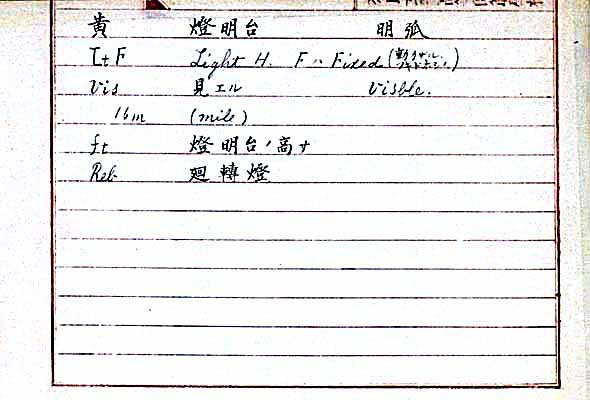 黄 燈明台 明弧
Lt F Light H. F ハ Fixed (動カザル
Vis 見エル Visble.
16 m (mile)
ft 燈明台ノ高サ
Reb. 廻轉燈